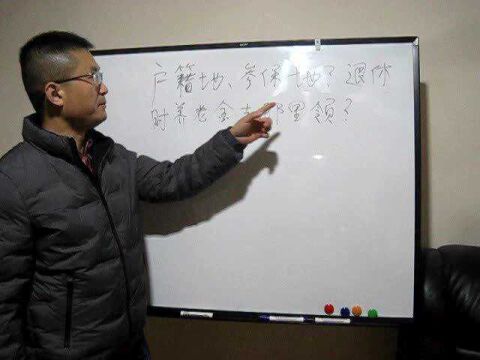 户籍地、参保 地？退休
时养老金 里领？